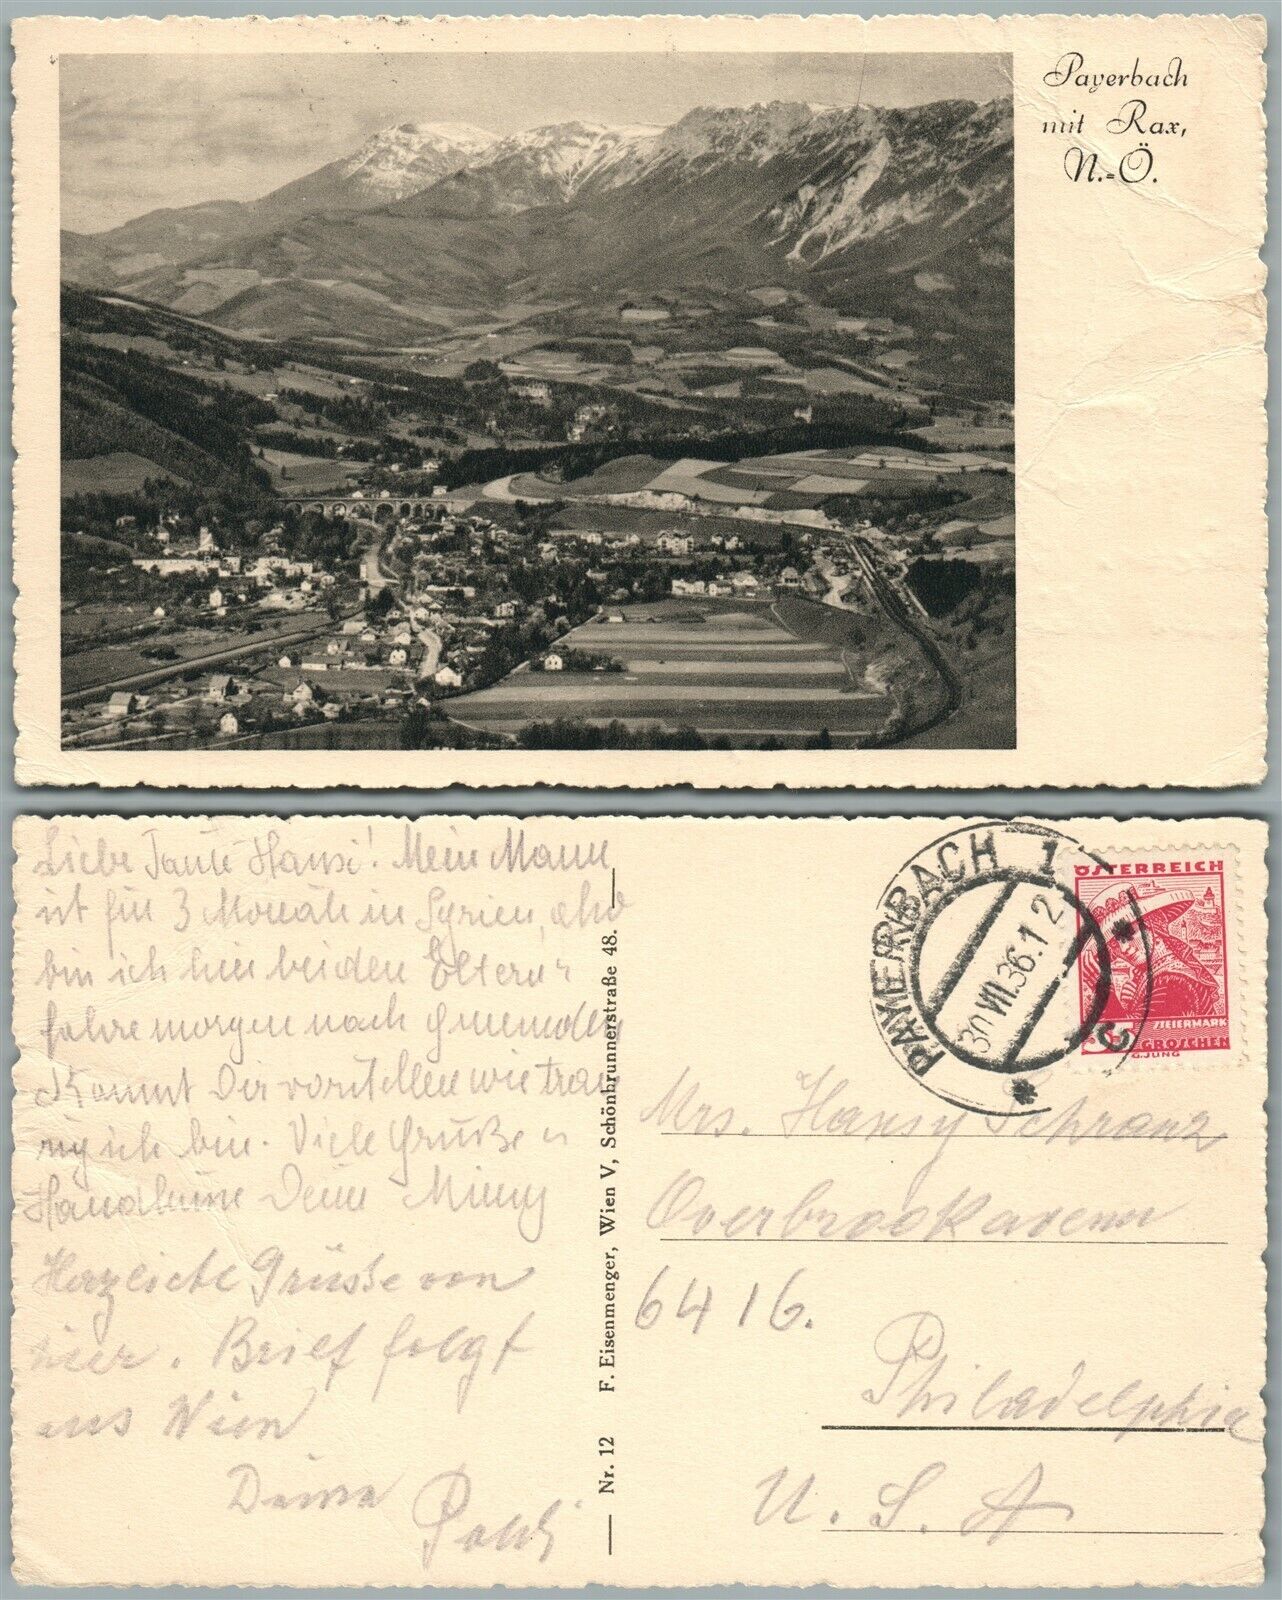 Payerbach
mit Rax,
N.=Ö.
Liebe Tante Hansi! Mein Mann
ist für 3 Monate in Syrien, also
bin ich hier bei den Eltern u
fahre morgen nach Gmunden
Kannst Dir vorstellen wie trau
rig ich bin. Viele Grüße u
Handküsse Deine Mimy
Herzliche Grüsse von
hier. Brief folgt
aus Wien
Deine
Poldi
Nr. 12 F. Eisenmenger, Wien V, Schönbrunnerstraße 48.
PAYERBACH 1
30.VII.36.12
C
ÖSTERREICH
STEIERMARK
35 GROSCHEN
G.JUNG
Mrs. Hansy Schranz
Overbrook avenue
6416.
Philadelphia
U. S. A